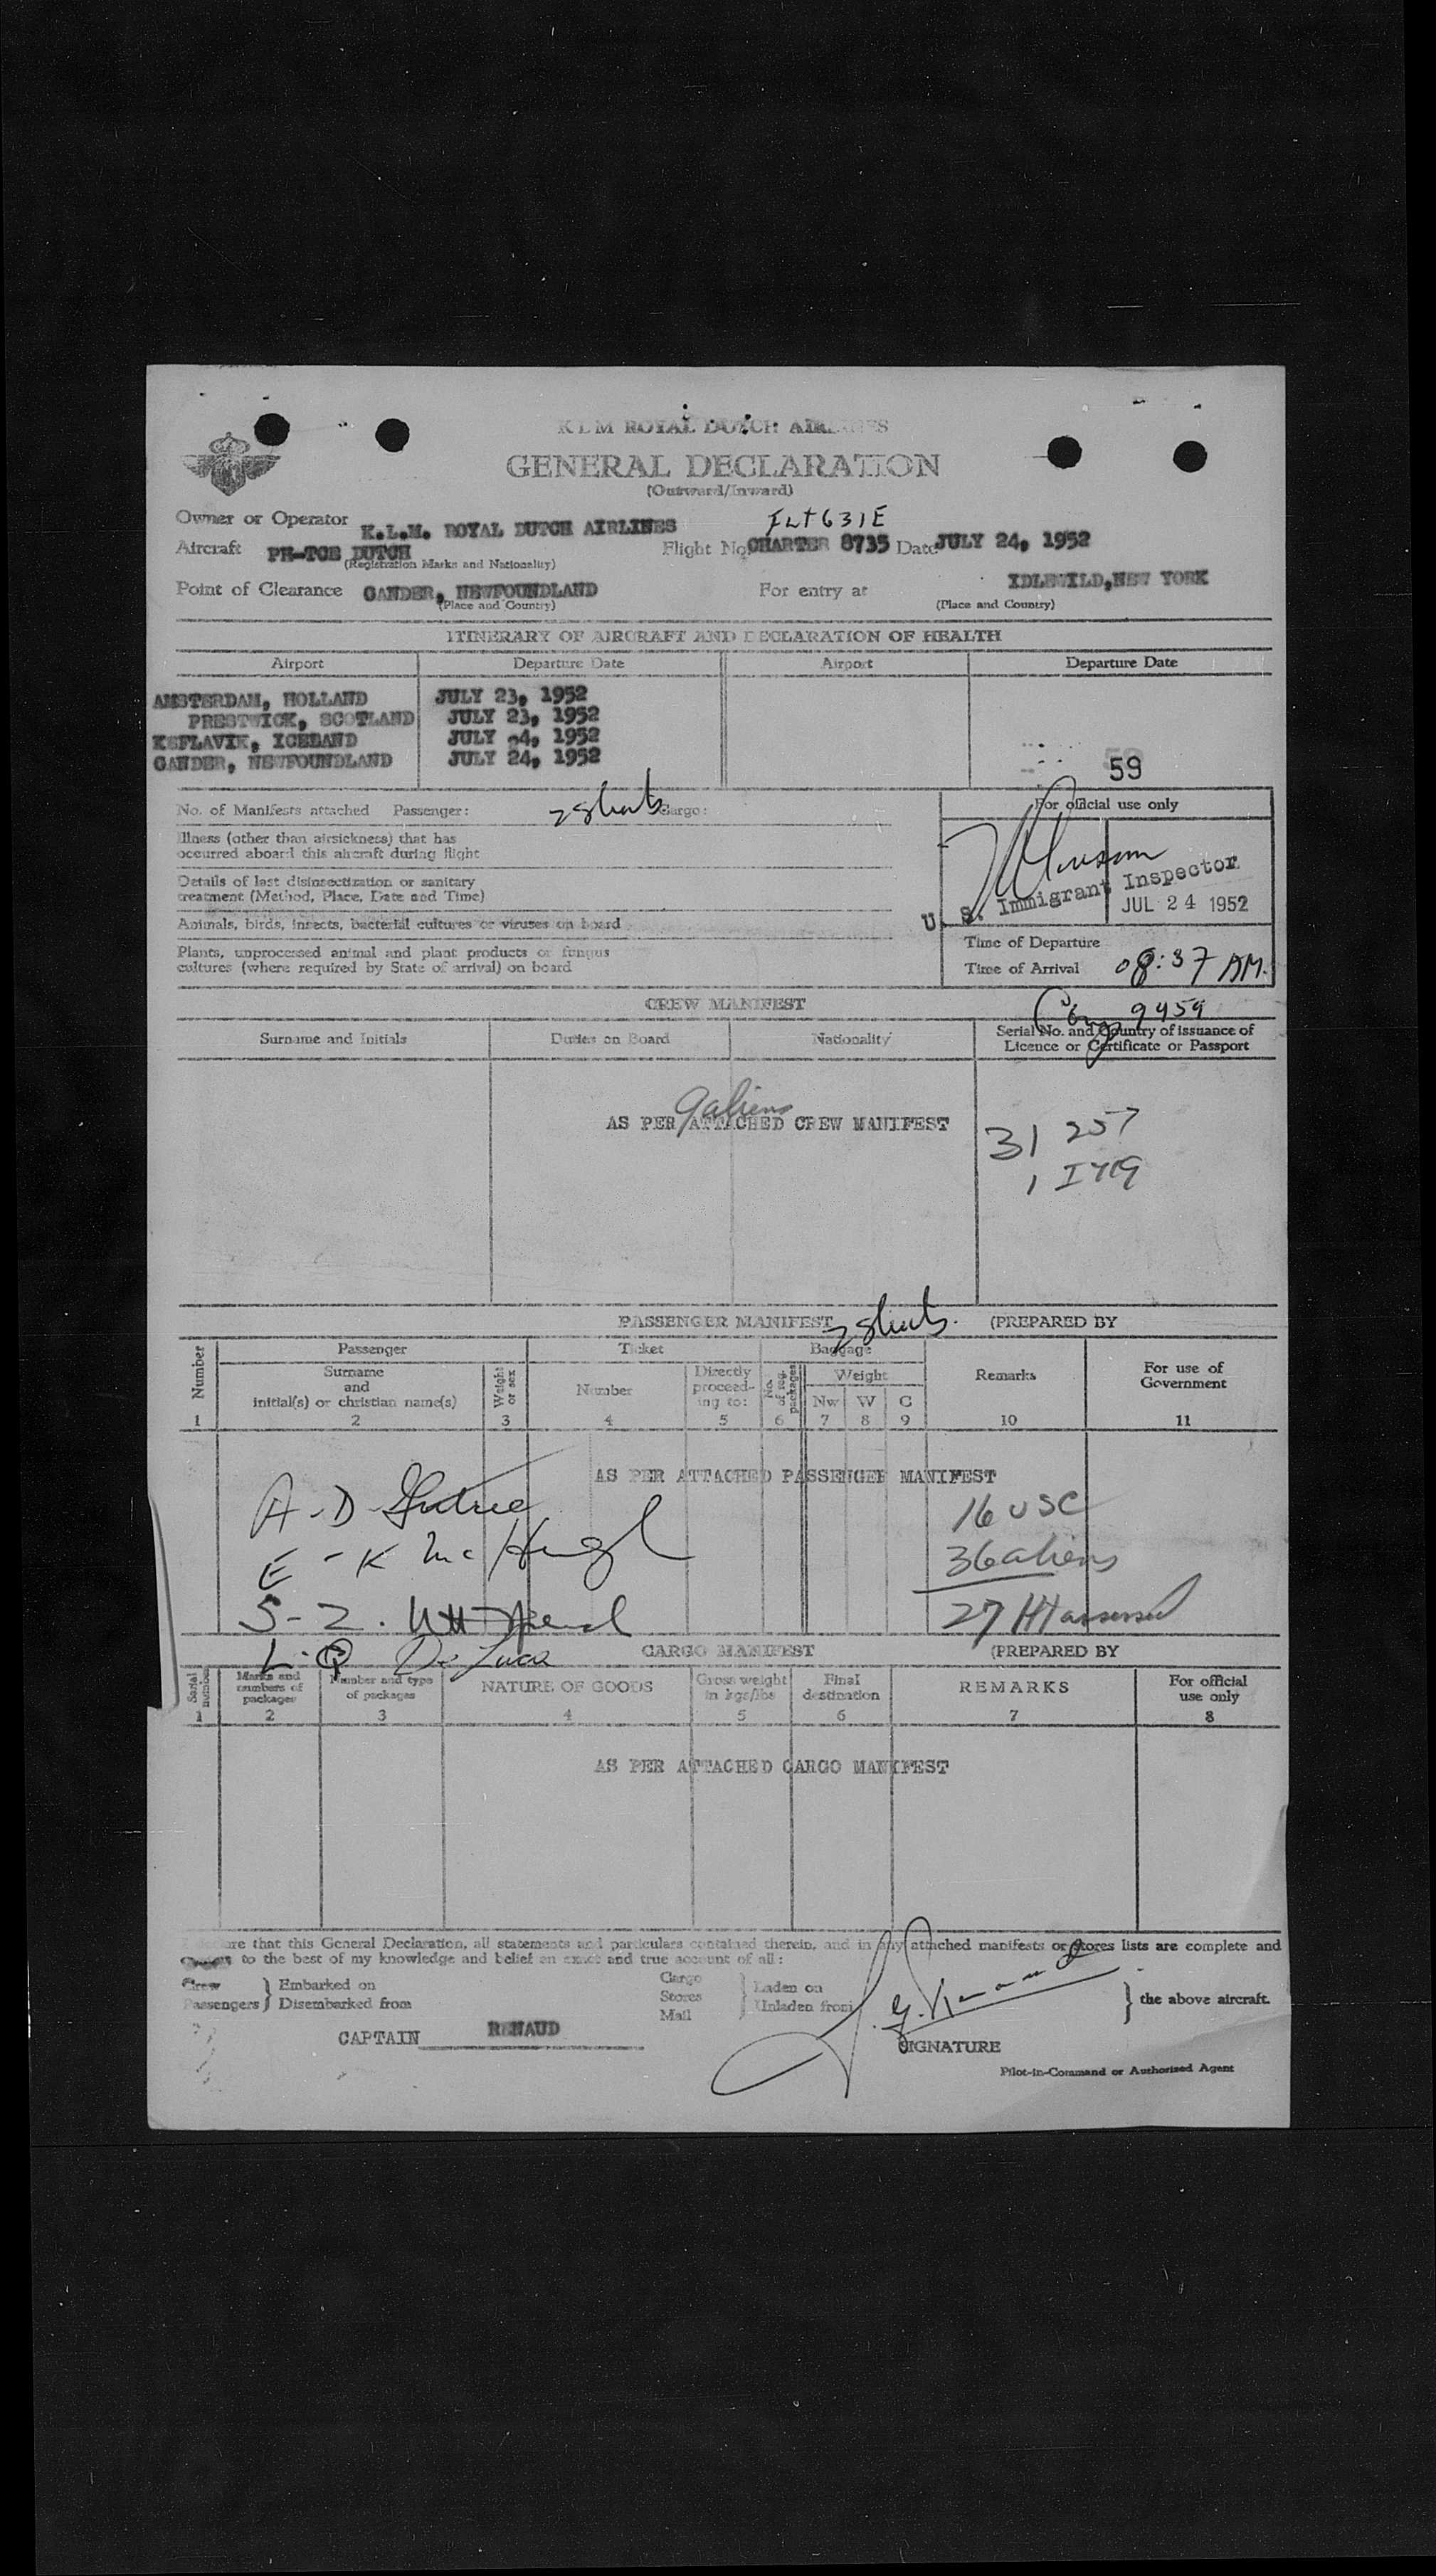 KLM ROYAL DUTCH AIRLINES
GENERAL DECLARATION
(Outward/Inward)
Owner or Operator K.L.M. ROYAL DUTCH AIRLINES
FLt 631E
Aircraft PH-TCE DUTCH Flight No CHARTER 8735 Date JULY 24, 1952
(Registration Marks and Nationality)
Point of Clearance GANDER, NEWFOUNDLAND For entry at IDLEWILD, NEW YORK
(Place and Country) (Place and Country)
ITINERARY OF AIRCRAFT AND DECLARATION OF HEALTH
Airport Departure Date Airport Departure Date
AMSTERDAM, HOLLAND JULY 23, 1952
PRESTWICK, SCOTLAND JULY 23, 1952
KEFLAVIK, ICELAND JULY 24, 1952
GANDER, NEWFOUNDLAND JULY 24, 1952
59
No. of Manifests attached Passenger: 2 sheets Cargo:
For official use only
Illness (other than airsickness) that has
occurred aboard this aircraft during flight
Details of last disinsectization or sanitary
treatment (Method, Place, Date and Time)
U. S. Immigrant Inspector
JUL 24 1952
Animals, birds, insects, bacterial cultures or viruses on board
Plants, unprocessed animal and plant products or fungus
cultures (where required by State of arrival) on board
Time of Departure
Time of Arrival 08:37 AM.
CREW MANIFEST
9459
Surname and Initials Duties on Board Nationality Serial No. and Country of issuance of
Licence or Certificate or Passport
9 aliens
AS PER ATTACHED CREW MANIFEST
31 257
1 I419
PASSENGER MANIFEST 2 sheets. (PREPARED BY
Number Passenger Ticket Baggage Remarks For use of
Government
Surname
and
initial(s) or christian name(s)
Weight
or sex
Number
Directly
proceed-
ing to:
No.
of reg.
packages
Weight
Nw W C
1 2 3 4 5 6 7 8 9 10 11
AS PER ATTACHED PASSENGER MANIFEST
A-D
E-K McHugh
S-Z
L-R De Luca
16 USC
36 aliens
27 HT assessed
CARGO MANIFEST (PREPARED BY
Serial
number
Marks and
numbers of
packages
Number and type
of packages
NATURE OF GOODS
Gross weight
in kgs/lbs
Final
destination
REMARKS
For official
use only
1 2 3 4 5 6 7 8
AS PER ATTACHED CARGO MANIFEST
are that this General Declaration, all statements and particulars contained therein, and in any attached manifests or stores lists are complete and
to the best of my knowledge and belief an exact and true account of all:
Crew
Passengers
Embarked on
Disembarked from
Cargo
Stores
Mail
Laden on
Unladen from
the above aircraft.
CAPTAIN RENAUD
SIGNATURE
Pilot-in-Command or Authorized Agent